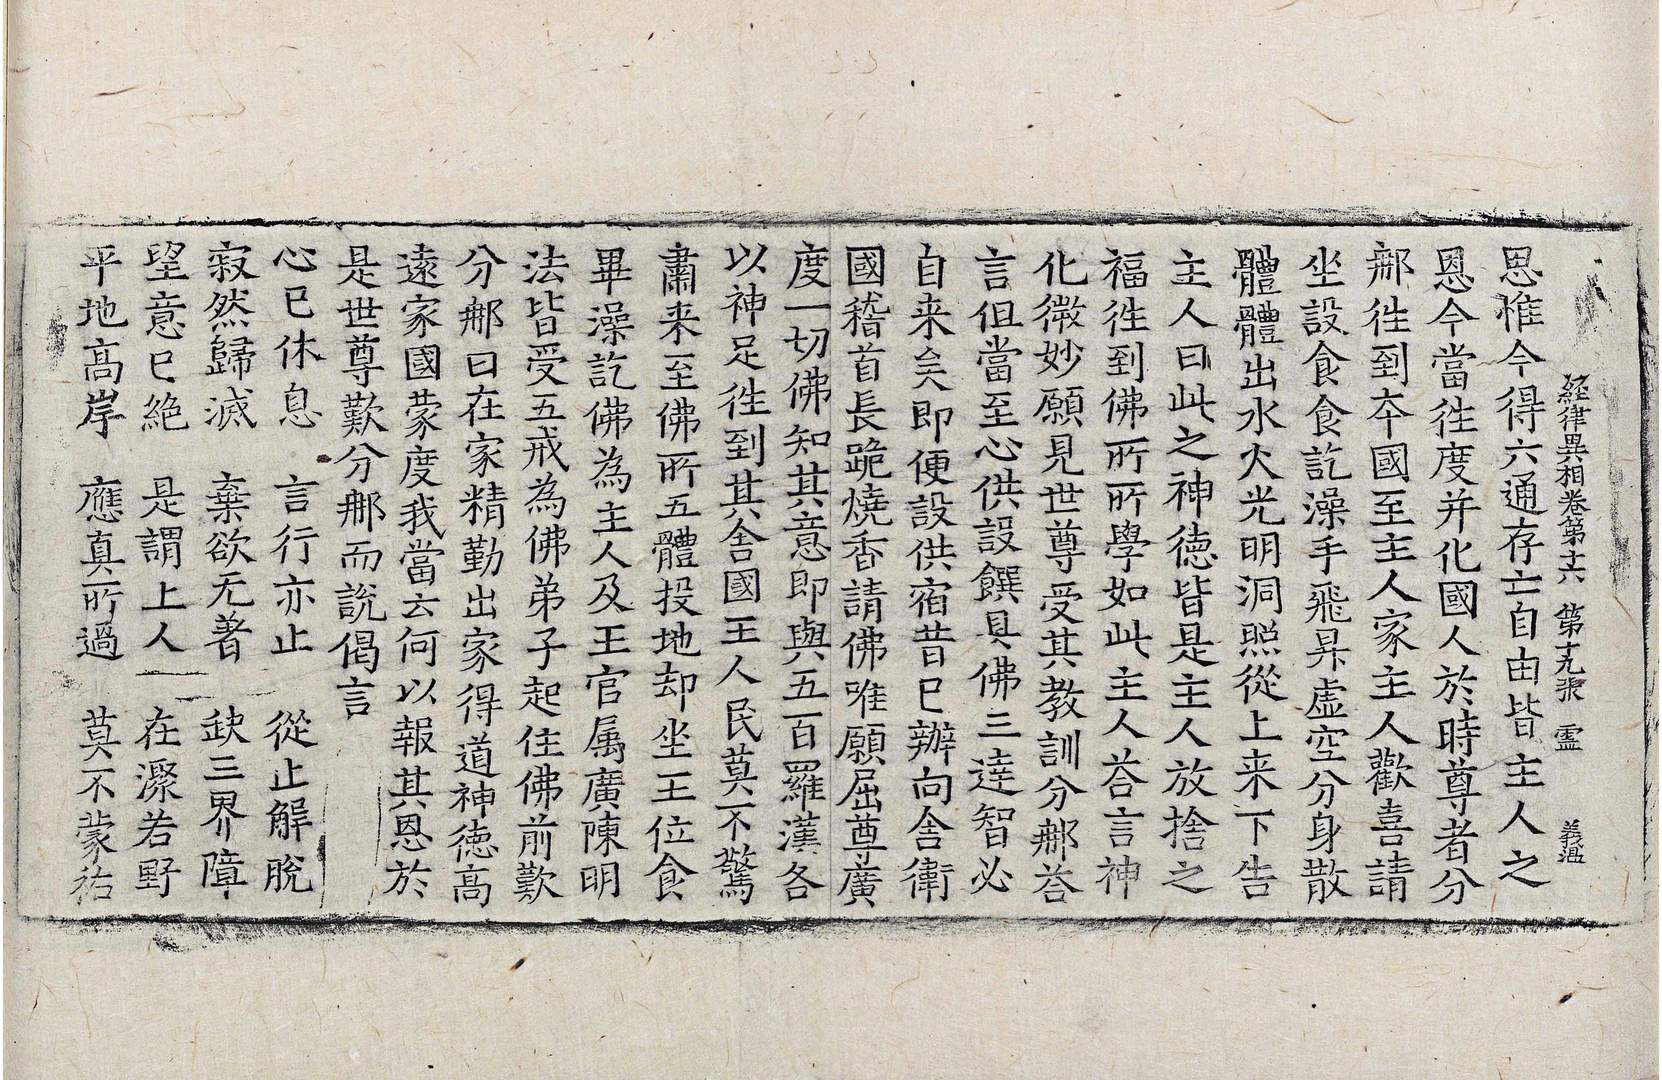 経律異相卷第十六 第十九張 霊 義温
思惟今得六通存亡自由皆主人之
恩今當徃度并化國人於時尊者分
郍徃到夲國至主人家主人歡喜請
坐設食食訖澡手飛昇虛空分身散
體體出水火光明洞照從上来下告
主人曰此之神德皆是主人放捨之
福徃到佛所所學如此主人荅言神
化微妙願見世尊受其教訓分郍荅
言但當至心供設饌具佛三達智必
自来矣即便設供宿昔已辦向舍衛
國稽首長跪燒香請佛唯願屈尊廣
度一切佛知其意即與五百羅漢各
以神足徃到其舍國王人民莫不驚
肅来至佛所五體投地却坐王位食
畢澡訖佛為主人及王官属廣陳明
法皆受五戒為佛弟子起住佛前歎
分郍曰在家精勤出家得道神德高
遠家國蒙度我當云何以報其恩於
是世尊歎分郍而說偈言
心已休息 言行亦止 從止解脫
寂然歸滅 棄欲无著 缺三界障
望意已絕 是謂上人 在聚若野
平地高岸 應真所過 莫不蒙祐